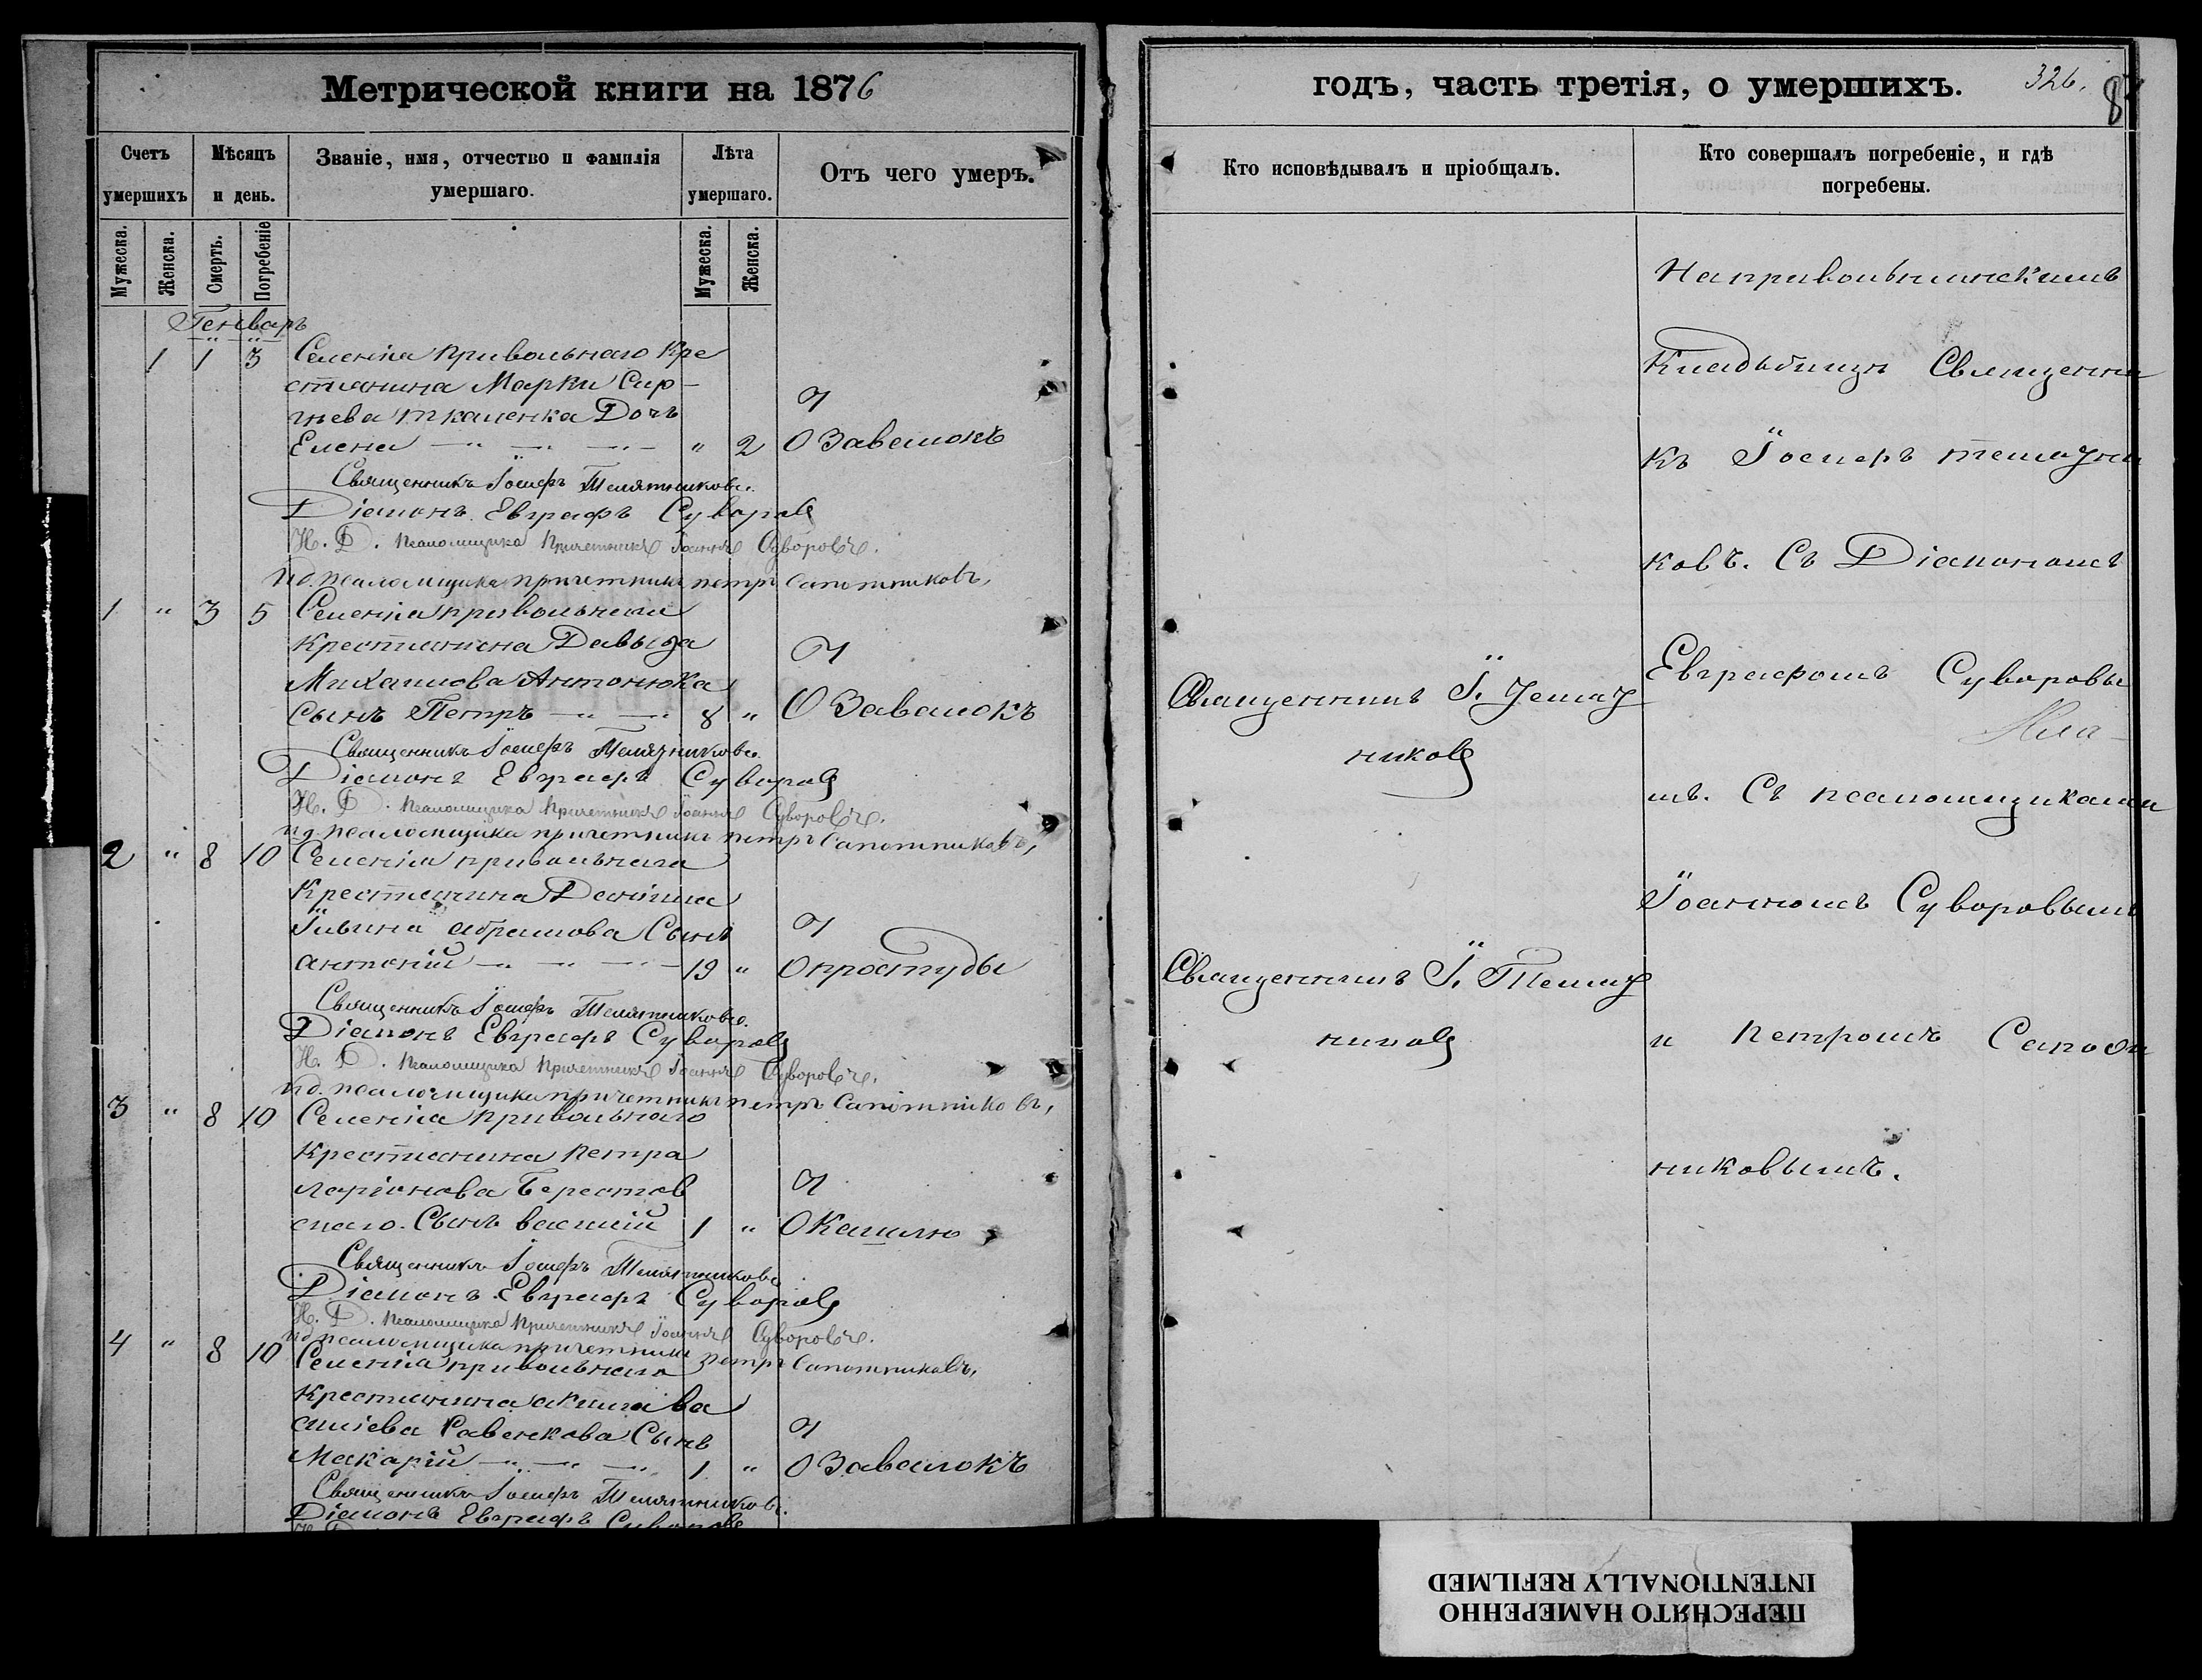 Метрической книги на 1876
Счетъ умершихъ
Мѣсяцъ и день.
Званіе, имя, отчество и фамилія умершаго.
Лѣта умершаго.
Отъ чего умеръ.
Мужеска.
Женска.
Смерть.
Погребеніе
Мужеска.
Женска.
Генваръ
1 1 3 Селенія привольнаго кре
стянина Марки Сир-
гѣева ткаленка Дочъ
Елена " 2 О Завалокъ
Священникъ Іосифъ Телятниковъ.
Діаконъ Евграфъ Суворовъ
И. Д. псаломщика Причетникъ Іоаннъ Суворовъ.
ид. псаломщика причетникъ петръ Сапожниковъ,
1 " 3 5 Селенія привольнаго
крестианина Давыда
Михаилова Антонюка
Сынъ Петръ 8 " О Завалокъ
Священникъ Іосифъ Телятниковъ.
Діаконъ Евграфъ Суворовъ
И. Д. псаломщика Причетникъ Іоаннъ Суворовъ.
ид. псаломщика причетникъ петръ Сапожниковъ,
2 " 8 10 Селенія привольнаго
Крестянина Даніила
абрамова Сынъ
антоній 19 " О простуды
Священникъ Іосифъ Телятниковъ.
Діаконъ Евграфъ Суворовъ
И. Д. псаломщика Причетникъ Іоаннъ Суворовъ.
ид. псаломщика причетникъ петръ Сапожниковъ,
3 " 8 10 Селенія привольнаго
крестианина петра
ларіонова Берестов
скаго. Сынъ василій 1 " О Кашлю
Священникъ Іосифъ Телятниковъ
Діаконъ Евграфъ Суворовъ
И. Д. псаломщика Причетникъ Іоаннъ Суворовъ.
ид псаломщика причетникъ петръ Сапожниковъ,
4 " 8 10 Селенія привольнаго
крестианина акима ва
силіева Равенкова Сынъ
Макарій 1. " О Завалокъ
Священникъ Іосифъ Телятниковъ.
Діаконъ Евграфъ Суворовъ
годъ, часть третія, о умершихъ.
326.
8
Кто исповѣдывалъ и пріобщалъ.
Кто совершалъ погребеніе, и гдѣ погребены.
На
Кладбищи Священни
къ Іосифъ телятни
ковъ. Съ Діакономъ
Евграфомъ Суворовы
мъ. Съ псаломщиками
Іоанномъ Суворовымъ
и петромъ Сапож
никовымъ.
Священникъ І. Телят
никовъ
Священникъ І. Телят
никовъ
ПЕРЕСНЯТО НАМЕРЕННО
INTENTIONALLY REFILMED